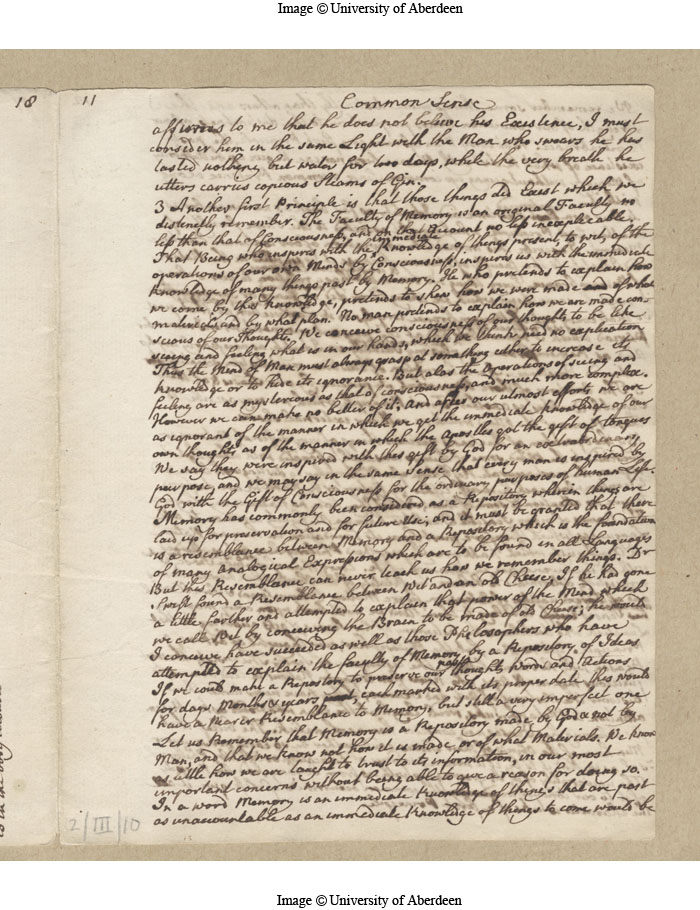 Image © University of Aberdeen
18
11
Common Sense
affirms to me that he does not believe his Existence, I must
consider him in the same Light with the Man who swears he has
tasted nothing but water for two days, while the very breath he
utters carries copious Steams of Gin.
3 Another first Principle is that those things did Exist which we
distinctly remember. The Faculty of Memory is an original Faculty no
less than that of Consciousness, and on that account no less inexplicable.
That Being who inspires with the immediate Knowledge of things present, to wit, of the
operations of our own Minds by Consciousness, inspires us with the immediate
Knowledge of many things past by Memory. He who pretends to explain how
we come by this Knowledge, pretends to shew how we were made and of what
materials and by what plan. No man pretends to explain how we are made con-
scious of our thoughts. We conceive consciousness of our thoughts to be like
seeing and feeling what is in our hands, which we think need no explication
Thus the Mind of Man must always grasp at something either to increase its
Knowledge or to hide its ignorance. But alas the operations of seeing and
feeling are as mysterious as that of consciousness, and much more complex.
However we can make no better of it. And after our utmost efforts we are
as ignorant of the manner in which we get the immediate Knowledge of our
own thoughts as of the manner in which the Apostles got the gift of tongues
We say they were inspired with this gift by God for an extraordinary
purpose, and we may say in the same Sense that every man is inspired by
God with the Gift of Consciousness for the ordinary purposes of human Life.
Memory has commonly been considered as a Repository wherein things are
laid up for preservation and for future Use; and it must be granted that there
is a resemblance between Memory and a Repository which is the foundation
of many analogical Expressions which are to be found in all Languages
But this Resemblance can never teach us how we remember things. Dr
Swift found a Resemblance between Wit and an old Cheese, If he had gone
a little farther and attempted to explain that power of the Mind which
we call Wit by conceiving the Brain to be made of old Cheese; he would
I conceive have succeeded as well as those Philosophers who have
attempted to explain the faculty of Memory by a Repository of Ideas
If we could make a Repository to preserve our past thoughts words and actions
for days Months & years, each marked with its proper date this would
have a nearer Resemblance to Memory, but still a very imperfect one
Let us Remember that Memory is a Repository made by God & not by
Man, and that we know not how it is made, or of what Materials. We know
as little how we are taught to trust to its information, in our most
important concerns without being able to give a reason for doing so.
In a word Memory is an immediate Knowledge of things that are past
as unaccountable as an immediate Knowledge of things to come would be
2/III/10
Image © University of Aberdeen